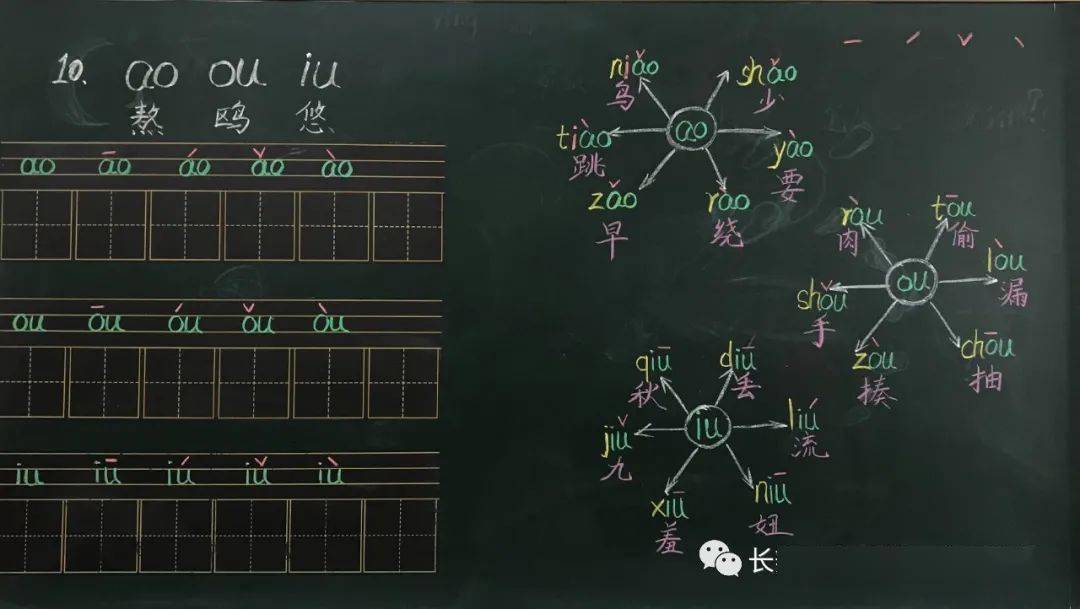 ˉ ˊ ˇ ˋ
10、 ao ou iu
熬 鸥 悠
ao āo áo ǎo ào
ou ōu óu ǒu òu
iu iū iú iǔ iù
ao
niǎo
鸟
shǎo
少
tiào
跳
yào
要
zǎo
早
rào
绕
ou
ròu
肉
tōu
偷
lòu
漏
shǒu
手
zòu
揍
chōu
抽
iu
qiū
秋
diū
丢
liú
流
jiǔ
九
xiū
羞
niū
妞
长